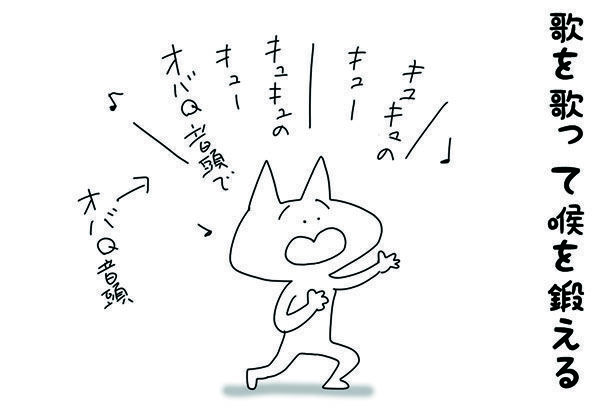 歌を歌って喉を鍛える
キュキュの
キュー
キュキュの
キュー
オバQ音頭で
オバQ音頭